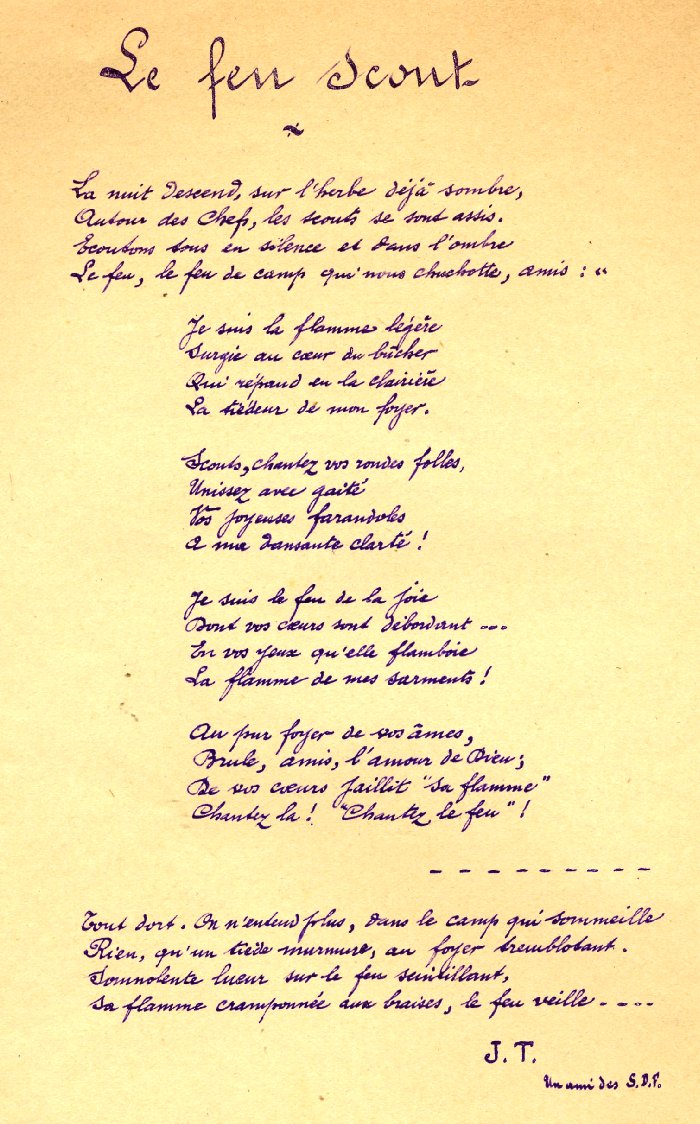 Le feu Scout
~
La nuit descend, sur l'herbe déjà sombre,
Autour des Chefs, les scouts se sont assis.
Ecoutons tous en silence et dans l'ombre
Le feu, le feu de camp qui nous chuchotte, amis : "
Je suis la flamme légère
Surgie au cœur du bûcher
Qui répand en la clairière
La tiédeur de mon foyer.
Scouts, chantez vos rondes folles,
Unissez avec gaité
Vos joyeuses farandoles
A ma dansante clarté !
Je suis le feu de la joie
Dont vos cœurs sont débordant ---
En vos yeux qu'elle flamboie
La flamme de mes sarments !
Au pur foyer de vos âmes,
Brule, amis, l'amour de Dieu ;
De vos cœurs jaillit "sa flamme"
Chantez la ! "Chantez le feu" !
- - - - - - - - -
Tout dort. On n'entend plus, dans le camp qui sommeille
Rien, qu'un tiède murmure, au foyer tremblotant.
Somnolente lueur sur le feu scintillant,
Sa flamme cramponnée aux braises, le feu veille - - - -
J.T.
Un ami des S.D.F.